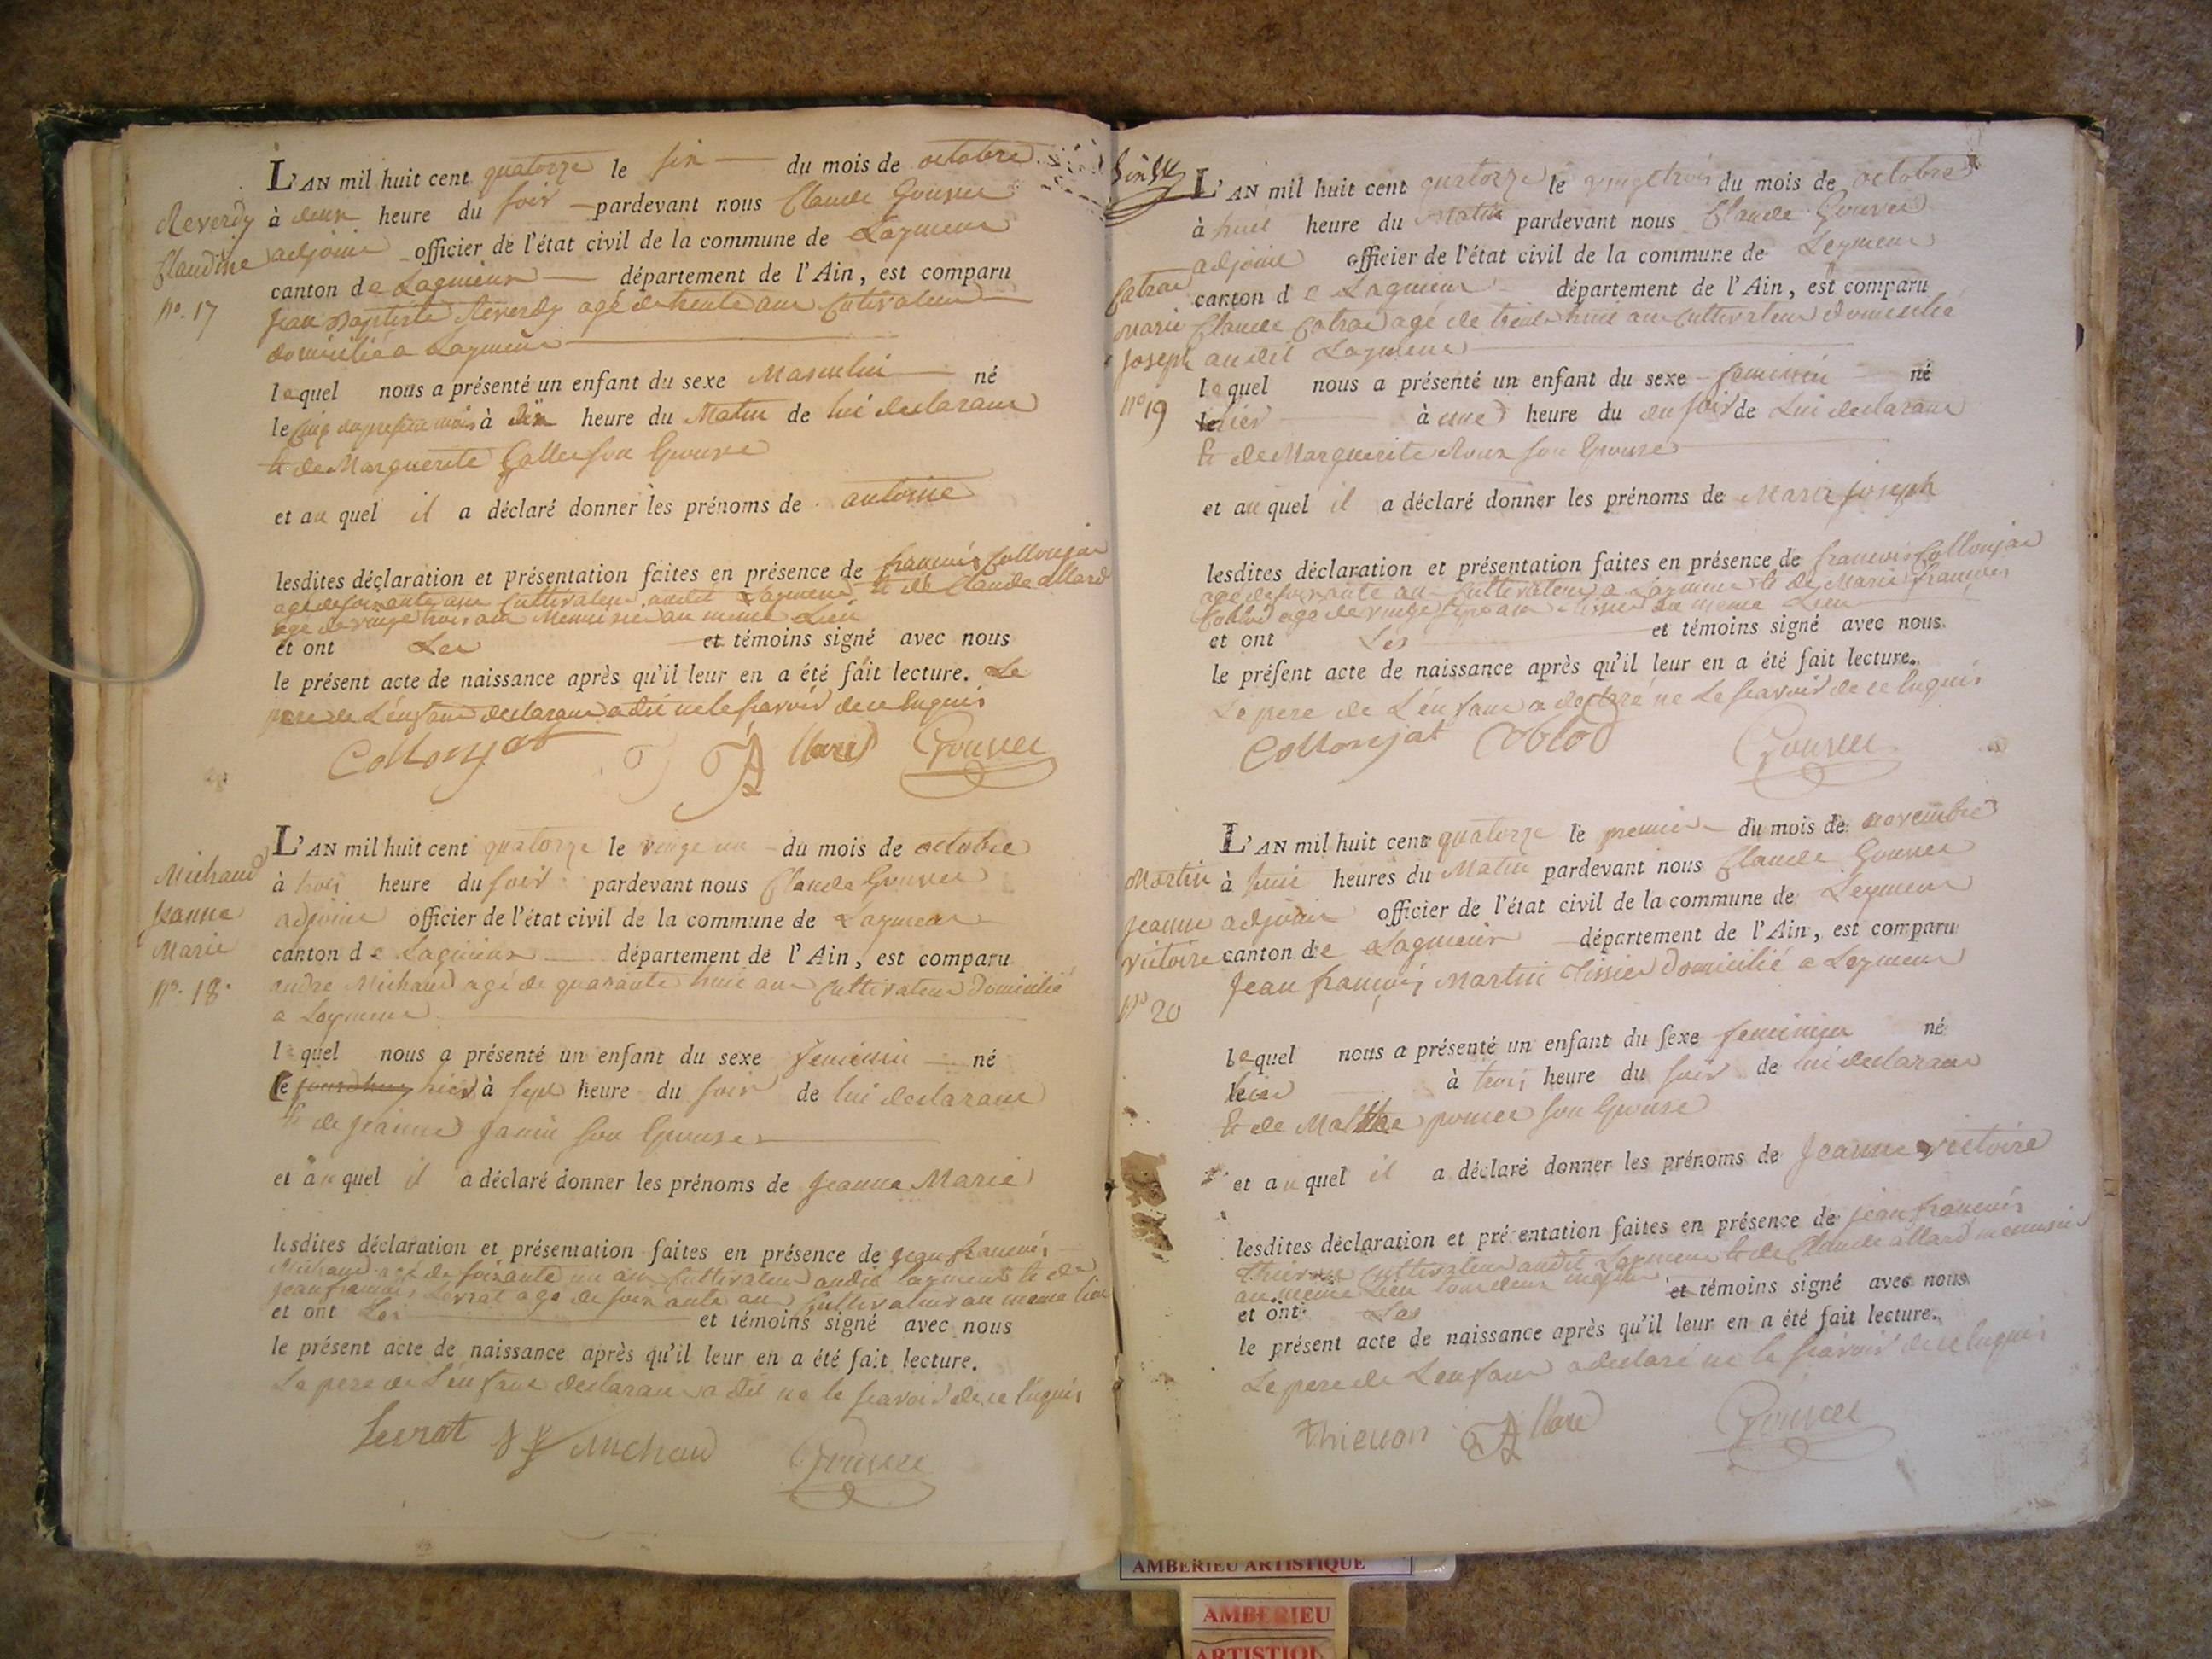 Reverdy
Claudine
no. 17
L'AN mil huit cent quatorze le six du mois de octobre
à deux heure du soir pardevant nous Claude Gouvee
adjoint officier de l'état civil de la commune de Laymeur
canton de Lagnieux département de l'Ain, est comparu
Jean Baptiste Reverdy agé de trente ans Cutivateur
domicilié a Laymeur
lequel nous a présenté un enfant du sexe Masculin né
le cinq du présent mois à dix heure du Matin de lui declarant
et de Marguerite Gallee son Epouse
et au quel il a déclaré donner les prénoms de antoine
lesdites déclaration et présentation faites en présence de francois Collonjat
agé de soixante ans Cultivateur audit Laymeur et de Claude allard
age de vingt trois ans Menuisier au meme Lieu
et ont Les et témoins signé avec nous
le présent acte de naissance après qu'il leur en a été fait lecture. Le
pere de L'enfant declarant a dit ne le scavoir de ce Enquis
Collonjat Allard Gouvee
Michaud
Jeanne
Marie
no. 18.
L'AN mil huit cent quatorze le vingt un du mois de octobre
à trois heure du soir pardevant nous Claude Gouvee
adjoint officier de l'état civil de la commune de Laymeur
canton de Lagnieux département de l'Ain, est comparu
andre Michaud agé de quarante huit ans Cultivateur domicilié
a Loymeur
lequel nous a présenté un enfant du sexe feminin né
le jourdhuy hier à sept heure du soir de lui declarant
et de jeanne Janin son Epouse
et au quel il a déclaré donner les prénoms de Jeanne Marie
lesdites déclaration et présentation faites en présence de Jean francois
Michaud agé de soixante un ans Cultivateur audit Laymeur et de
jean francois Levrat age de soixante ans Cultivateur au meme lieu
et ont Les et témoins signé avec nous
le présent acte de naissance après qu'il leur en a été fait lecture.
Le pere de L'enfant declarant a dit ne le scavoir de ce Enquis
Levrat Michaud Gouvee
Catrau
Marie
Joseph
no 19
L'AN mil huit cent quatorze le vingt trois du mois de octobre
à huit heure du Matin pardevant nous Claude Gouvee
adjoint officier de l'état civil de la commune de Leymeur
canton de Lagnieux département de l'Ain, est comparu
Claude Catrau agé de trente huit ans Cultivateur domicilié
audit Laymeur
lequel nous a présenté un enfant du sexe feminin né
hier à une heure du du soir de Lui declarant
et de Marguerite Roux son Epouse
et au quel il a déclaré donner les prénoms de Marie joseph
lesdites déclaration et présentation faites en présence de francois Collonjat
agé de soixante ans Cultivateur a Laymeur et de Marie francois
Coblod agé de vingt sept ans tissier au meme Lieu
et ont Les et témoins signé avec nous
le présent acte de naissance après qu'il leur en a été fait lecture.
Le pere de L'enfant a declaré ne Le scavoir de ce Enquis
Collonjat Coblod Gouvee
Martin
Jeanne
victoire
no 20
L'AN mil huit cent quatorze le premier du mois de novembre
à huit heures du Matin pardevant nous Claude Gouvee
adjoint officier de l'état civil de la commune de Leymeur
canton de Lagnieux département de l'Ain, est comparu
Jean françois Martin Tissier domicilié a Leymeur
lequel nous a présenté un enfant du sexe feminin né
hier à trois heure du soir de lui declarant
et de Marthe poncer son Epouse
et au quel il a déclaré donner les prénoms de Jeanne victoire
lesdites déclaration et présentation faites en présence de jean francois
Thievon Cultivateur audit Laymeur et de Claude allard menuisier
au meme Lieu tous deux majeur
et ont Les et témoins signé avec nous
le présent acte de naissance après qu'il leur en a été fait lecture.
Le pere de Lenfant a declaré ne le scavoir de ce Enquis
Thievon Allard Gouvee
AMBERIEU ARTISTIQUE
AMBERIEU